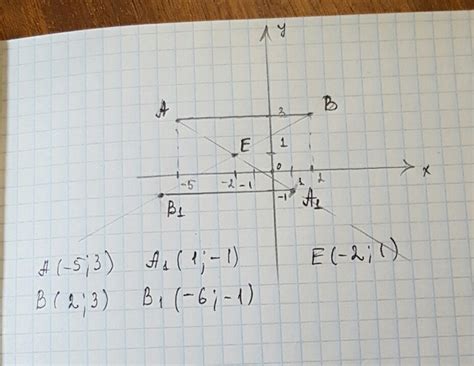 y
A 3 B
E 1
-5 -2 -1 0 1 2 x
B1 -1 A1
A(-5;3) A1(1;-1) E(-2;1)
B(2;3) B1(-6;-1)